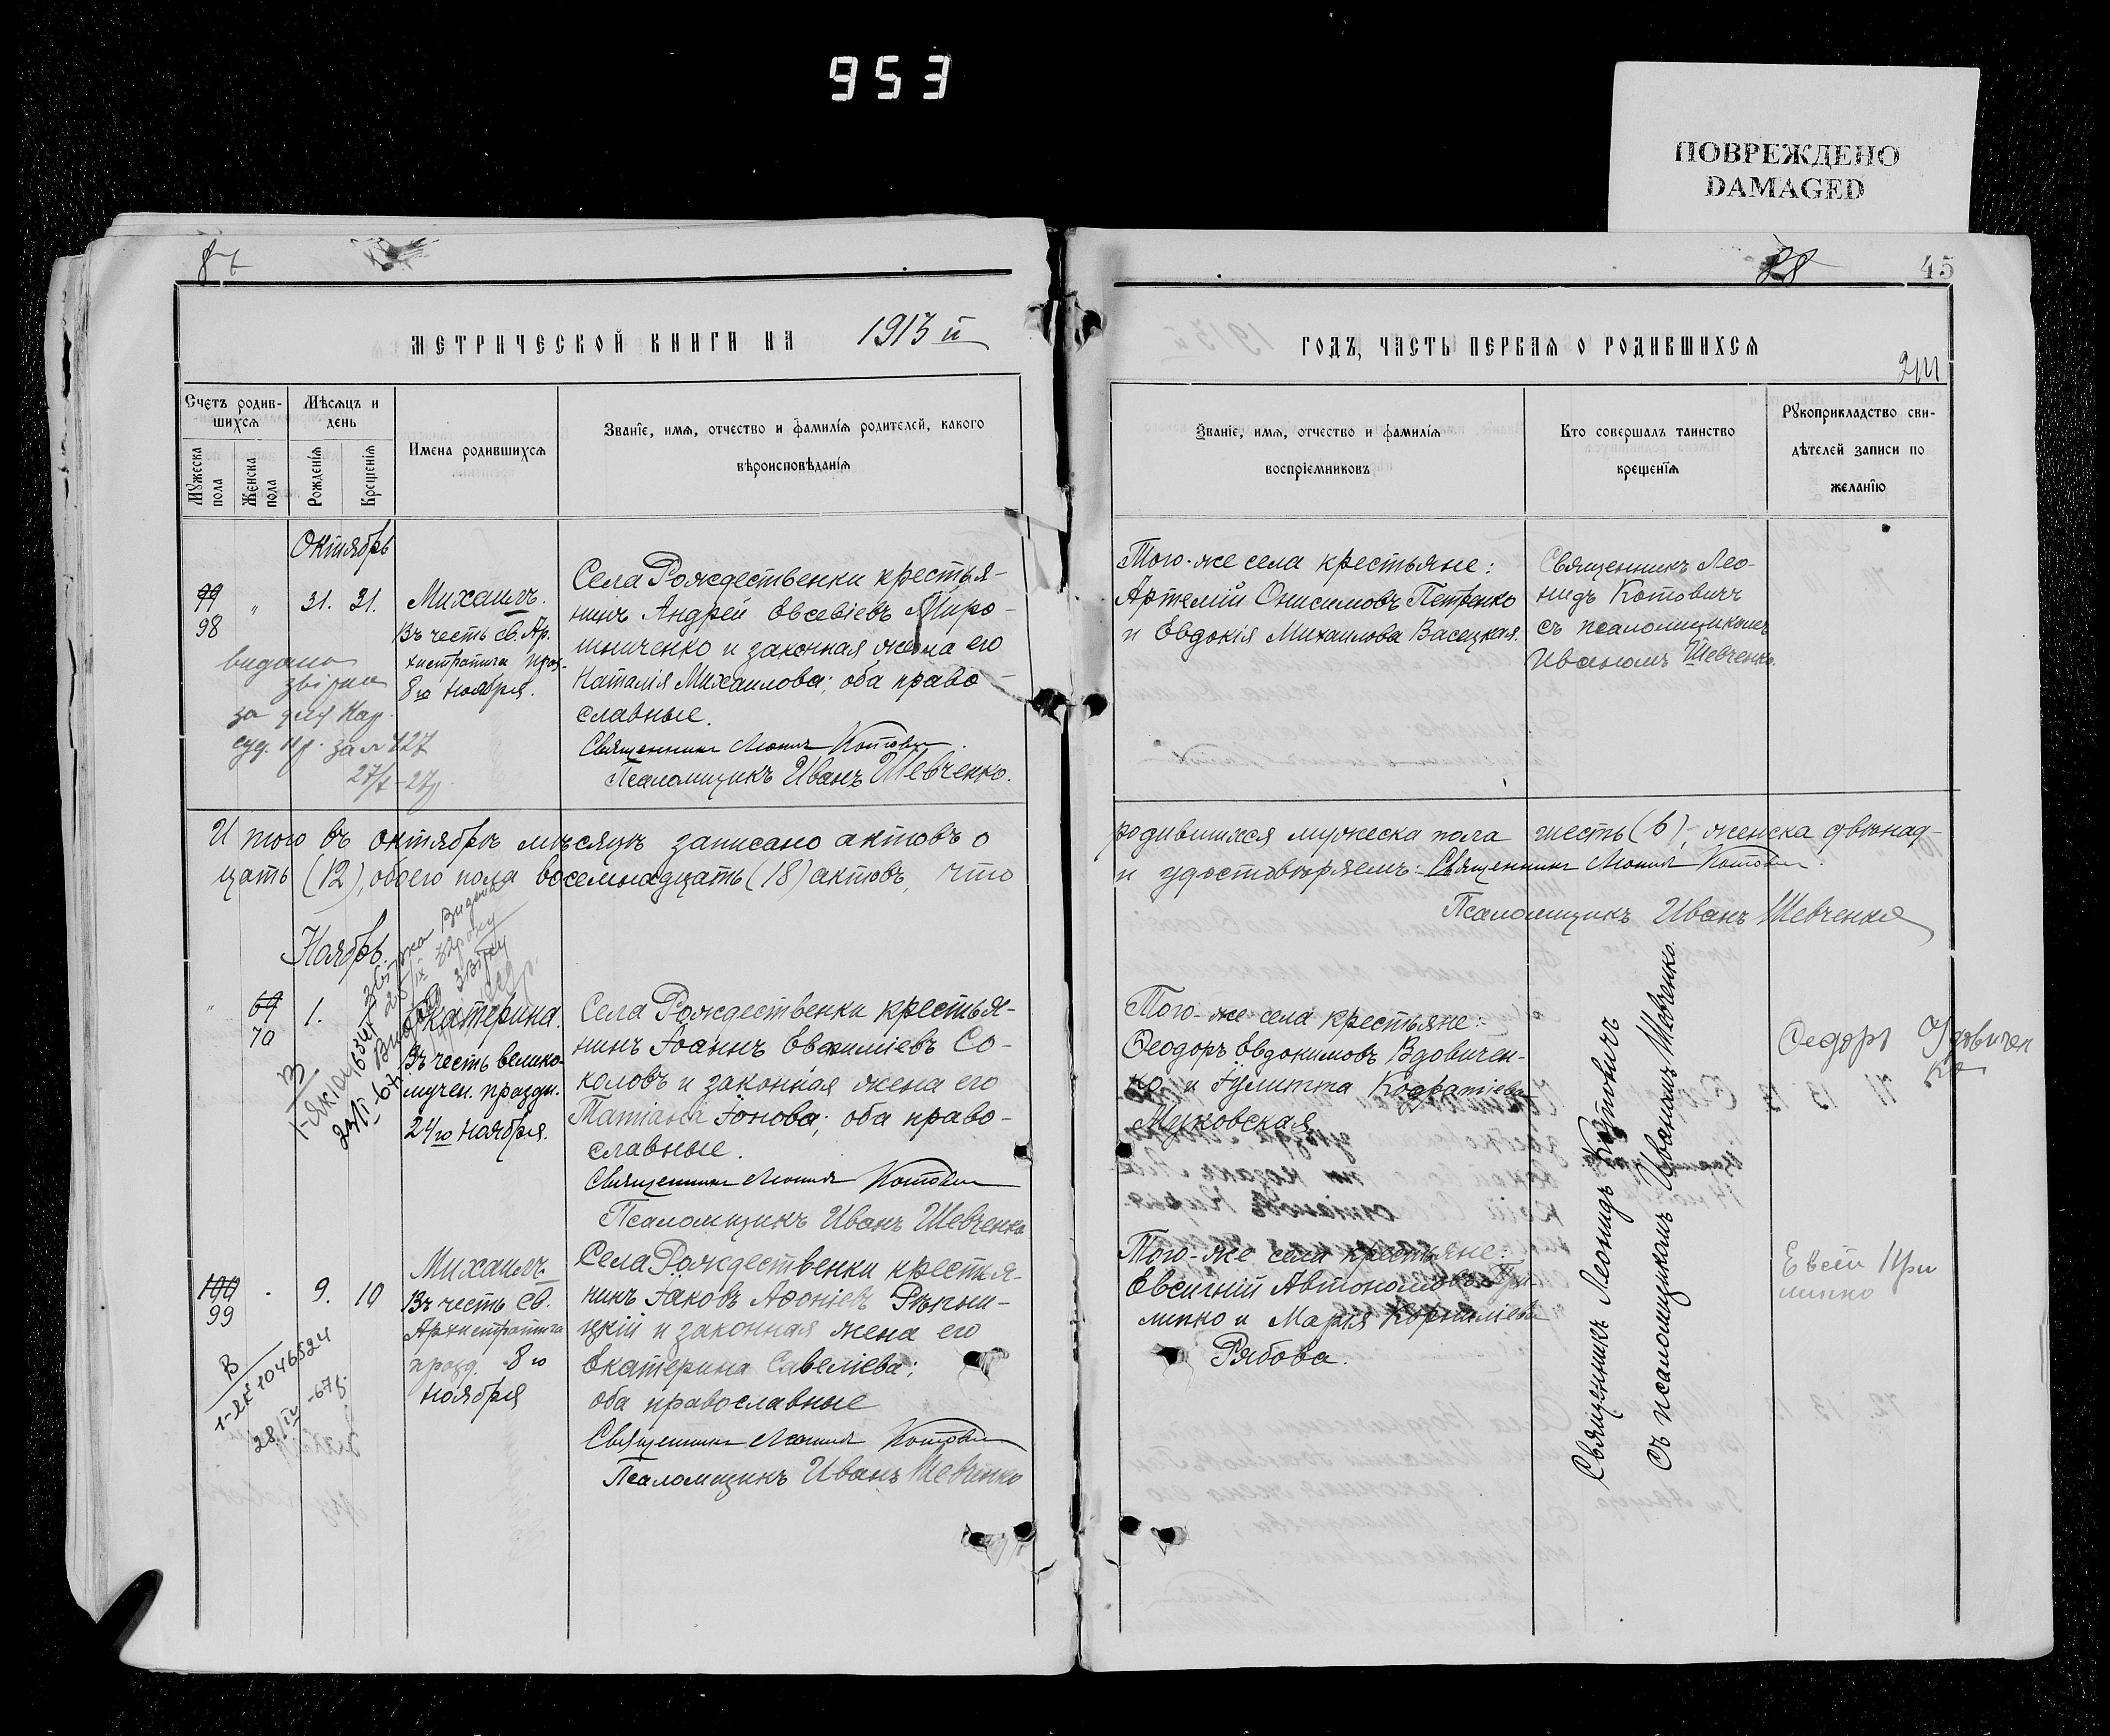 953
ПОВРЕЖДЕНО
DAMAGED
87
88
45
МЕТРИЧЕСКОЙ КНИГИ НА 1913 й
ГОДЪ, ЧАСТЬ ПЕРВАЯ О РОДИВШИХСЯ
Счетъ родив-
шихся
Мѣсяцъ и
день
Мужеска
пола
Женска
пола
Рожденія
Крещенія
Имена родившихся
Званіе, имя, отчество и фамилія родителей, какого
вѣроисповѣданія
Званіе, имя, отчество и фамилія
воспріемниковъ
Кто совершалъ таинство
крещенія
Рукоприкладство сви-
дѣтелей записи по
желанію
Октябрь
99
98
"
31. 31.
Михаилъ.
Въ честь св. Ар-
хистратига празд.
8го Ноября.
Села Рождественки крестья-
нинъ Андрей Евсевіевъ Миро-
шниченко и законная жена его
Наталія Михаилова; оба право-
славные.
Священникъ Леонидъ Котовичъ.
Псаломщикъ Иванъ Шевченко.
Того-же села крестьяне:
Артемій Онисимовъ Петренко
и Евдокія Михаилова Васецкая.
Священникъ Лео-
нидъ Котовичъ
съ псаломщикомъ
Иваномъ Шевченко.
видано
звірка
за для Нар.
суд. за № 127
Итого въ октябрѣ мѣсяцѣ записано актовъ о родившихся мужеска пола шесть (6), женска двѣнад-
цать (12), обоего пола восемнадцать (18) актовъ, что и удостовѣряемъ: Священникъ Леонидъ Котовичъ.
Псаломщикъ Иванъ Шевченко
Ноябрь.
"
69
70
1.
Екатерина.
Въ честь велико-
мучен. праздн.
24го Ноября.
Села Рождественки крестья-
нинъ Іоаннъ Евфиміевъ Со-
коловъ и законная жена его
Татіана Іонова; оба право-
славные.
Священникъ Леонидъ Котовичъ
Псаломщикъ Иванъ Шевченко
Того-же села крестьяне:
Ѳеодоръ Евдокимовъ Вдовичен-
ко и Іулитта Кодратіева
Священникъ Леонидъ Котовичъ
съ псаломщикомъ Иваномъ Шевченко.
Ѳедоръ Удовичен
ко
100
99
9. 10
Михаилъ.
Въ честь св.
Архистратига
празд. 8го
Ноября
Села Рождественки крестья-
нинъ Іаковъ Аѳоніевъ Рѣпни-
цкій и законная жена его
Екатерина Савеліева;
оба православные
Священникъ Леонидъ Котовичъ
Псаломщикъ Иванъ Шевченко
Того-же села крестьяне:
Евсигній Автономовъ
и Марія Корниліева
Рябова.
В
28/IV-67г.